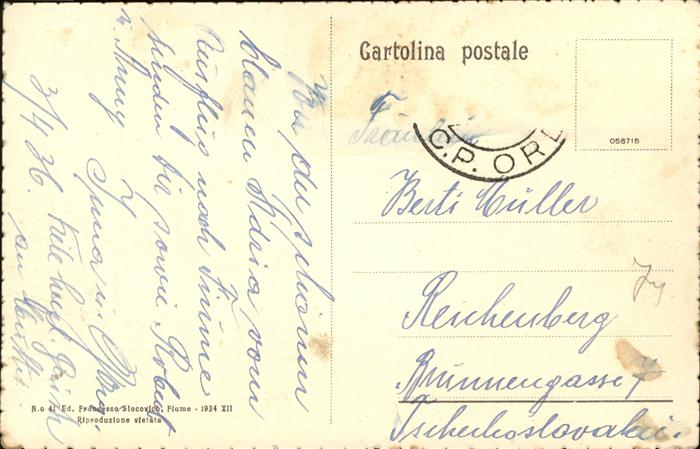 Cartolina postale
058715
C.P. ORD
Fräulein
Berti Müller
Reichenberg
Brunnengasse 7
Tschechoslovakei.
Von der schönen
blauen Adria vom
Ausflug nach Fiume
senden dir sowie Robert
3/4 36.
N.o 41 Ed. Francesco Slocovich, Fiume - 1934 XII
Riproduzione vietata